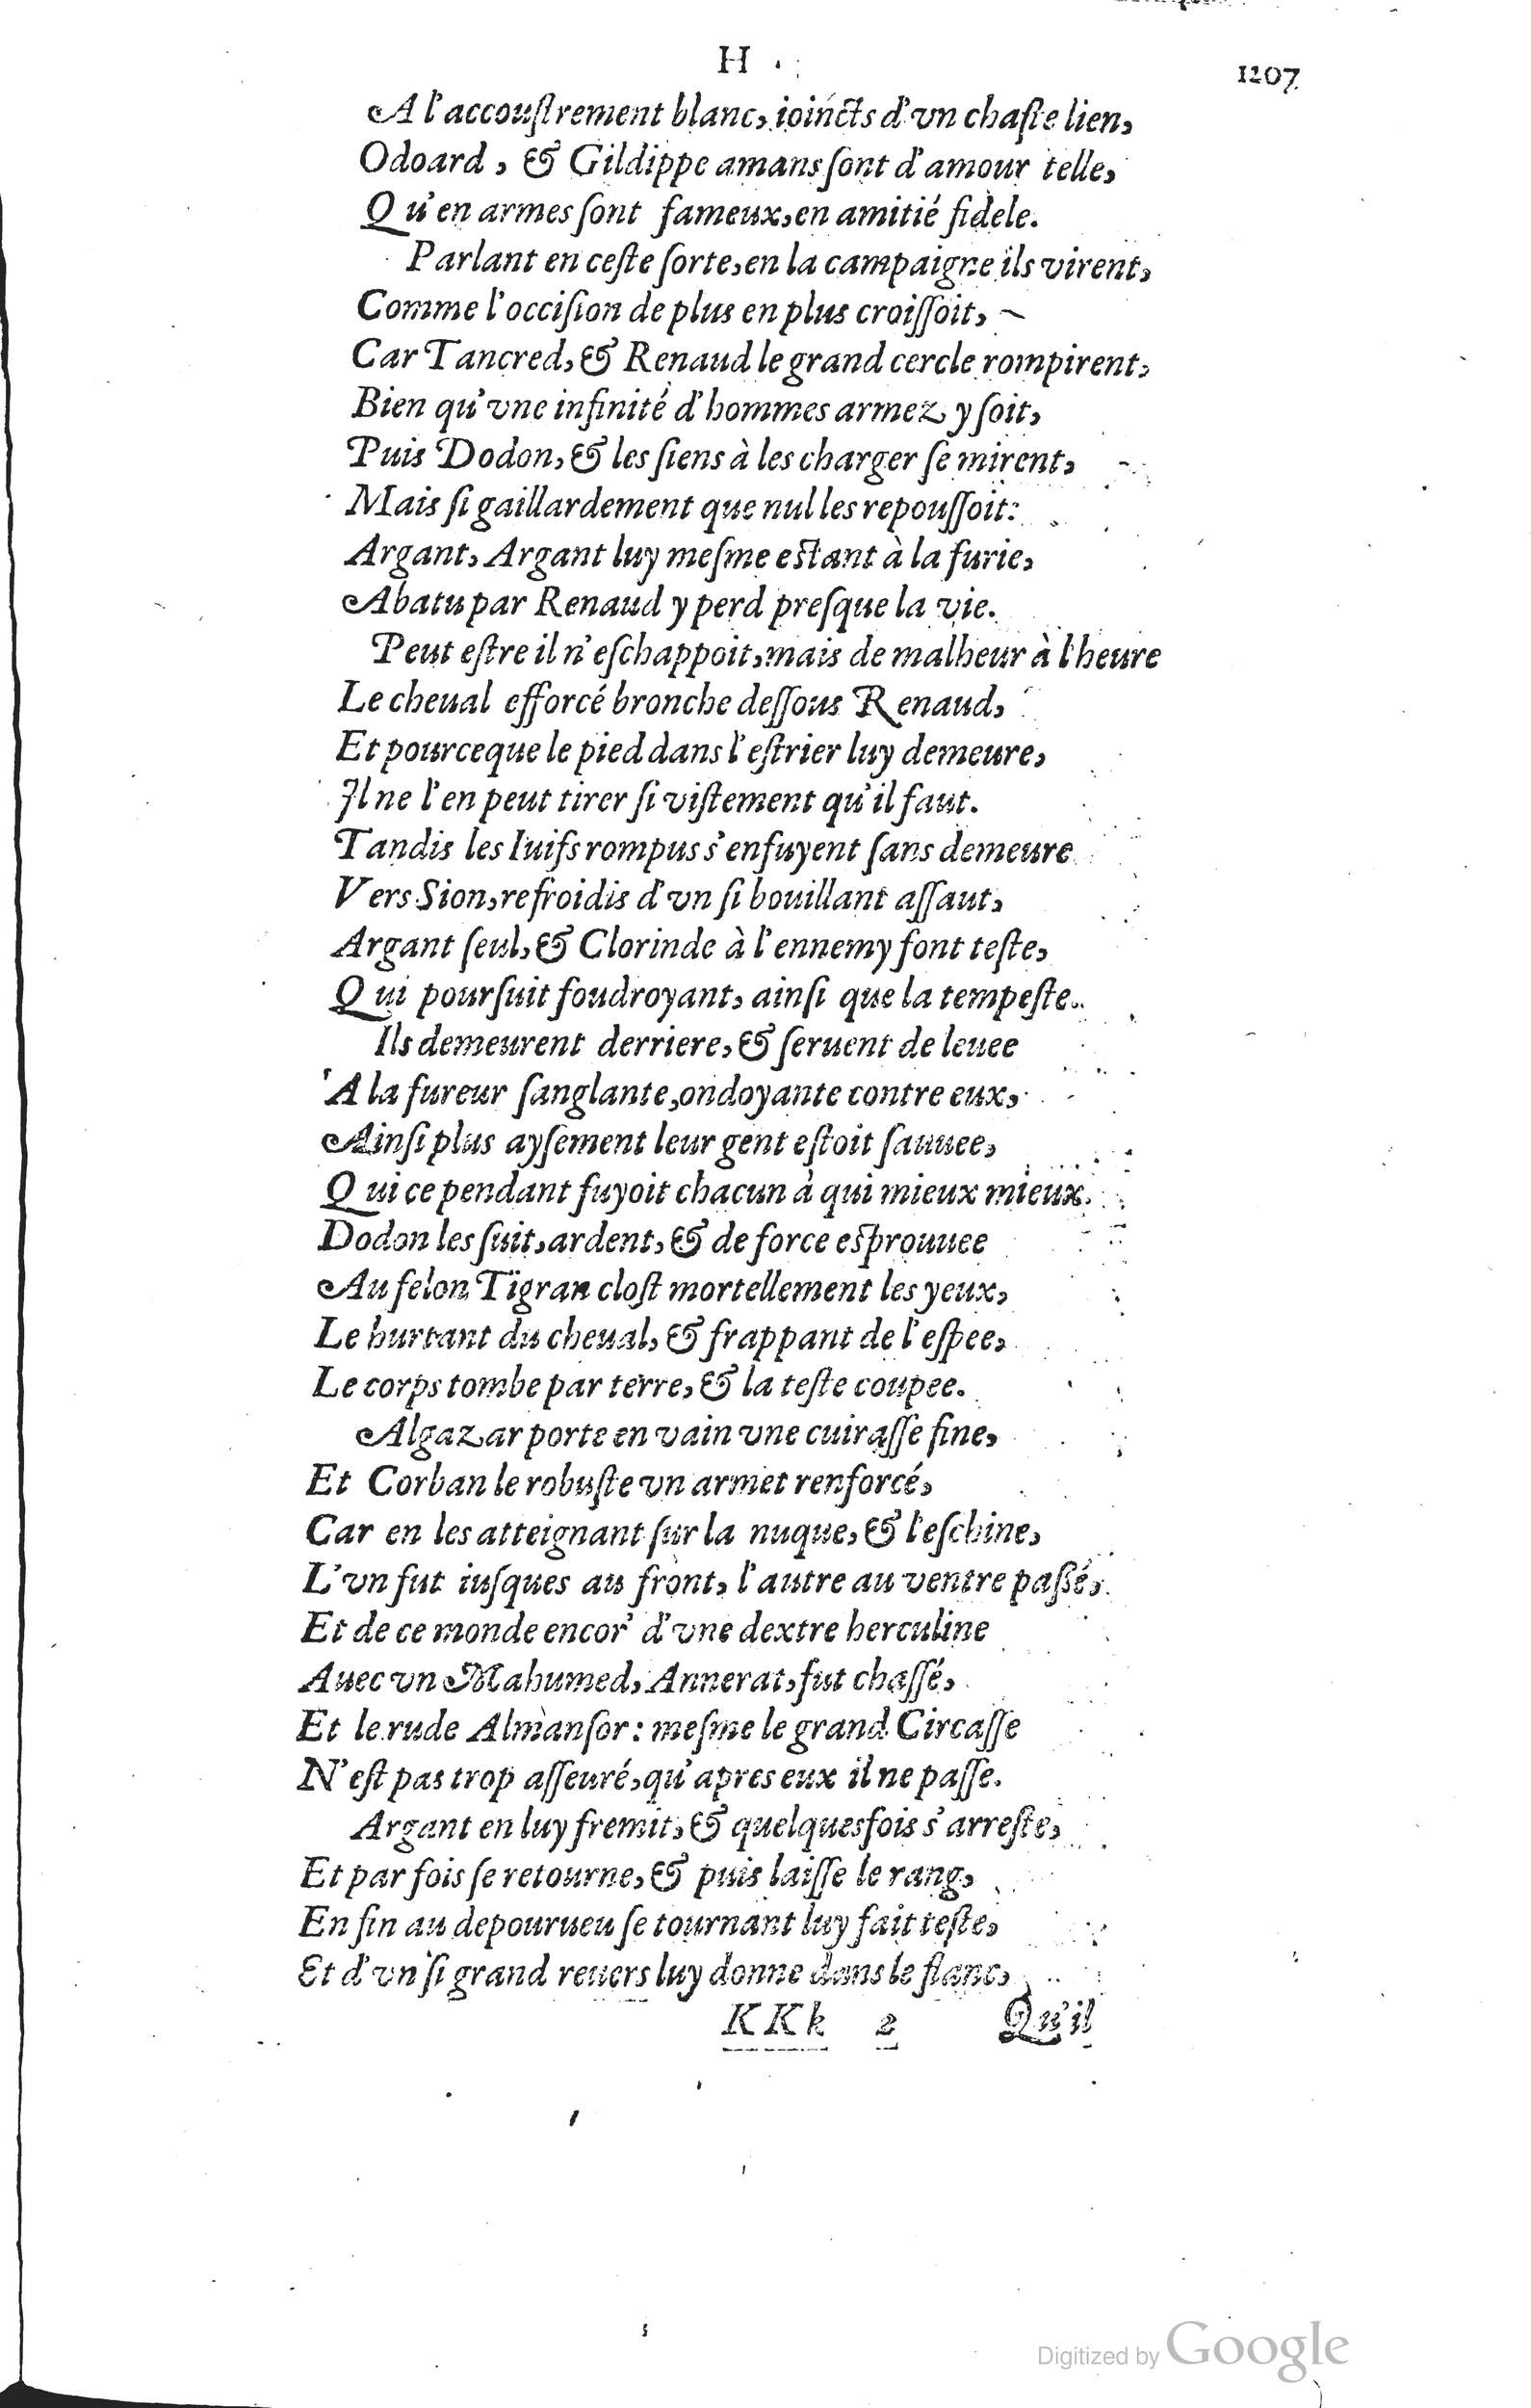 H
1207
A l'accouſtrement blanc, ioincts d'vn chaſte lien,
Odoard, & Gildippe amans ſont d'amour telle,
Qu'en armes ſont fameux, en amitié fidele.
Parlant en ceſte ſorte, en la campaigne ils virent,
Comme l'occiſion de plus en plus croiſſoit,
Car Tancred, & Renaud le grand cercle rompirent,
Bien qu'vne infinité d'hommes armez y ſoit,
Puis Dodon, & les ſiens à les charger ſe mirent,
Mais ſi gaillardement que nul les repouſſoit:
Argant, Argant luy meſme eſtant à la furie,
Abatu par Renaud y perd preſque la vie.
Peut eſtre il n'eſchappoit, mais de malheur à l'heure
Le cheual efforcé bronche deſſous Renaud,
Et pource que le pied dans l'eſtrier luy demeure,
Il ne l'en peut tirer ſi viſtement qu'il faut.
Tandis les Iuifs rompus s'enfuyent ſans demeure
Vers Sion, refroidis d'vn ſi bouillant aſſaut,
Argant ſeul, & Clorinde à l'ennemy font teſte,
Qui pourſuit foudroyant, ainſi que la tempeſte.
Ils demeurent derriere, & ſeruent de leuee
A la fureur ſanglante, ondoyante contre eux,
Ainſi plus ayſement leur gent eſtoit ſauuee,
Qui ce pendant fuyoit chacun à qui mieux mieux.
Dodon les ſuit, ardent, & de force eſprouuee
Au felon Tigran cloſt mortellement les yeux,
Le hurtant du cheual, & frappant de l'eſpee,
Le corps tombe par terre, & la teſte coupee.
Algazar porte en vain vne cuiraſſe fine,
Et Corban le robuſte vn armet renforcé,
Car en les atteignant ſur la nuque, & l'eſchine,
L'vn fut iuſques au front, l'autre au ventre paſſé,
Et de ce monde encor' d'vne dextre herculine
Auec vn Mahumed, Annerat, fut chaſſé,
Et le rude Almanſor: meſme le grand Circaſſe
N'eſt pas trop aſſeuré, qu'apres eux il ne paſſe.
Argant en luy fremit, & quelquesfois s'arreſte,
Et par fois ſe retourne, & puis laiſſe le rang,
En fin au depourueu ſe tournant luy fait teſte,
Et d'vn ſi grand reuers luy donne dans le flanc,
KKk 2 Qu'il
Digitized by Google